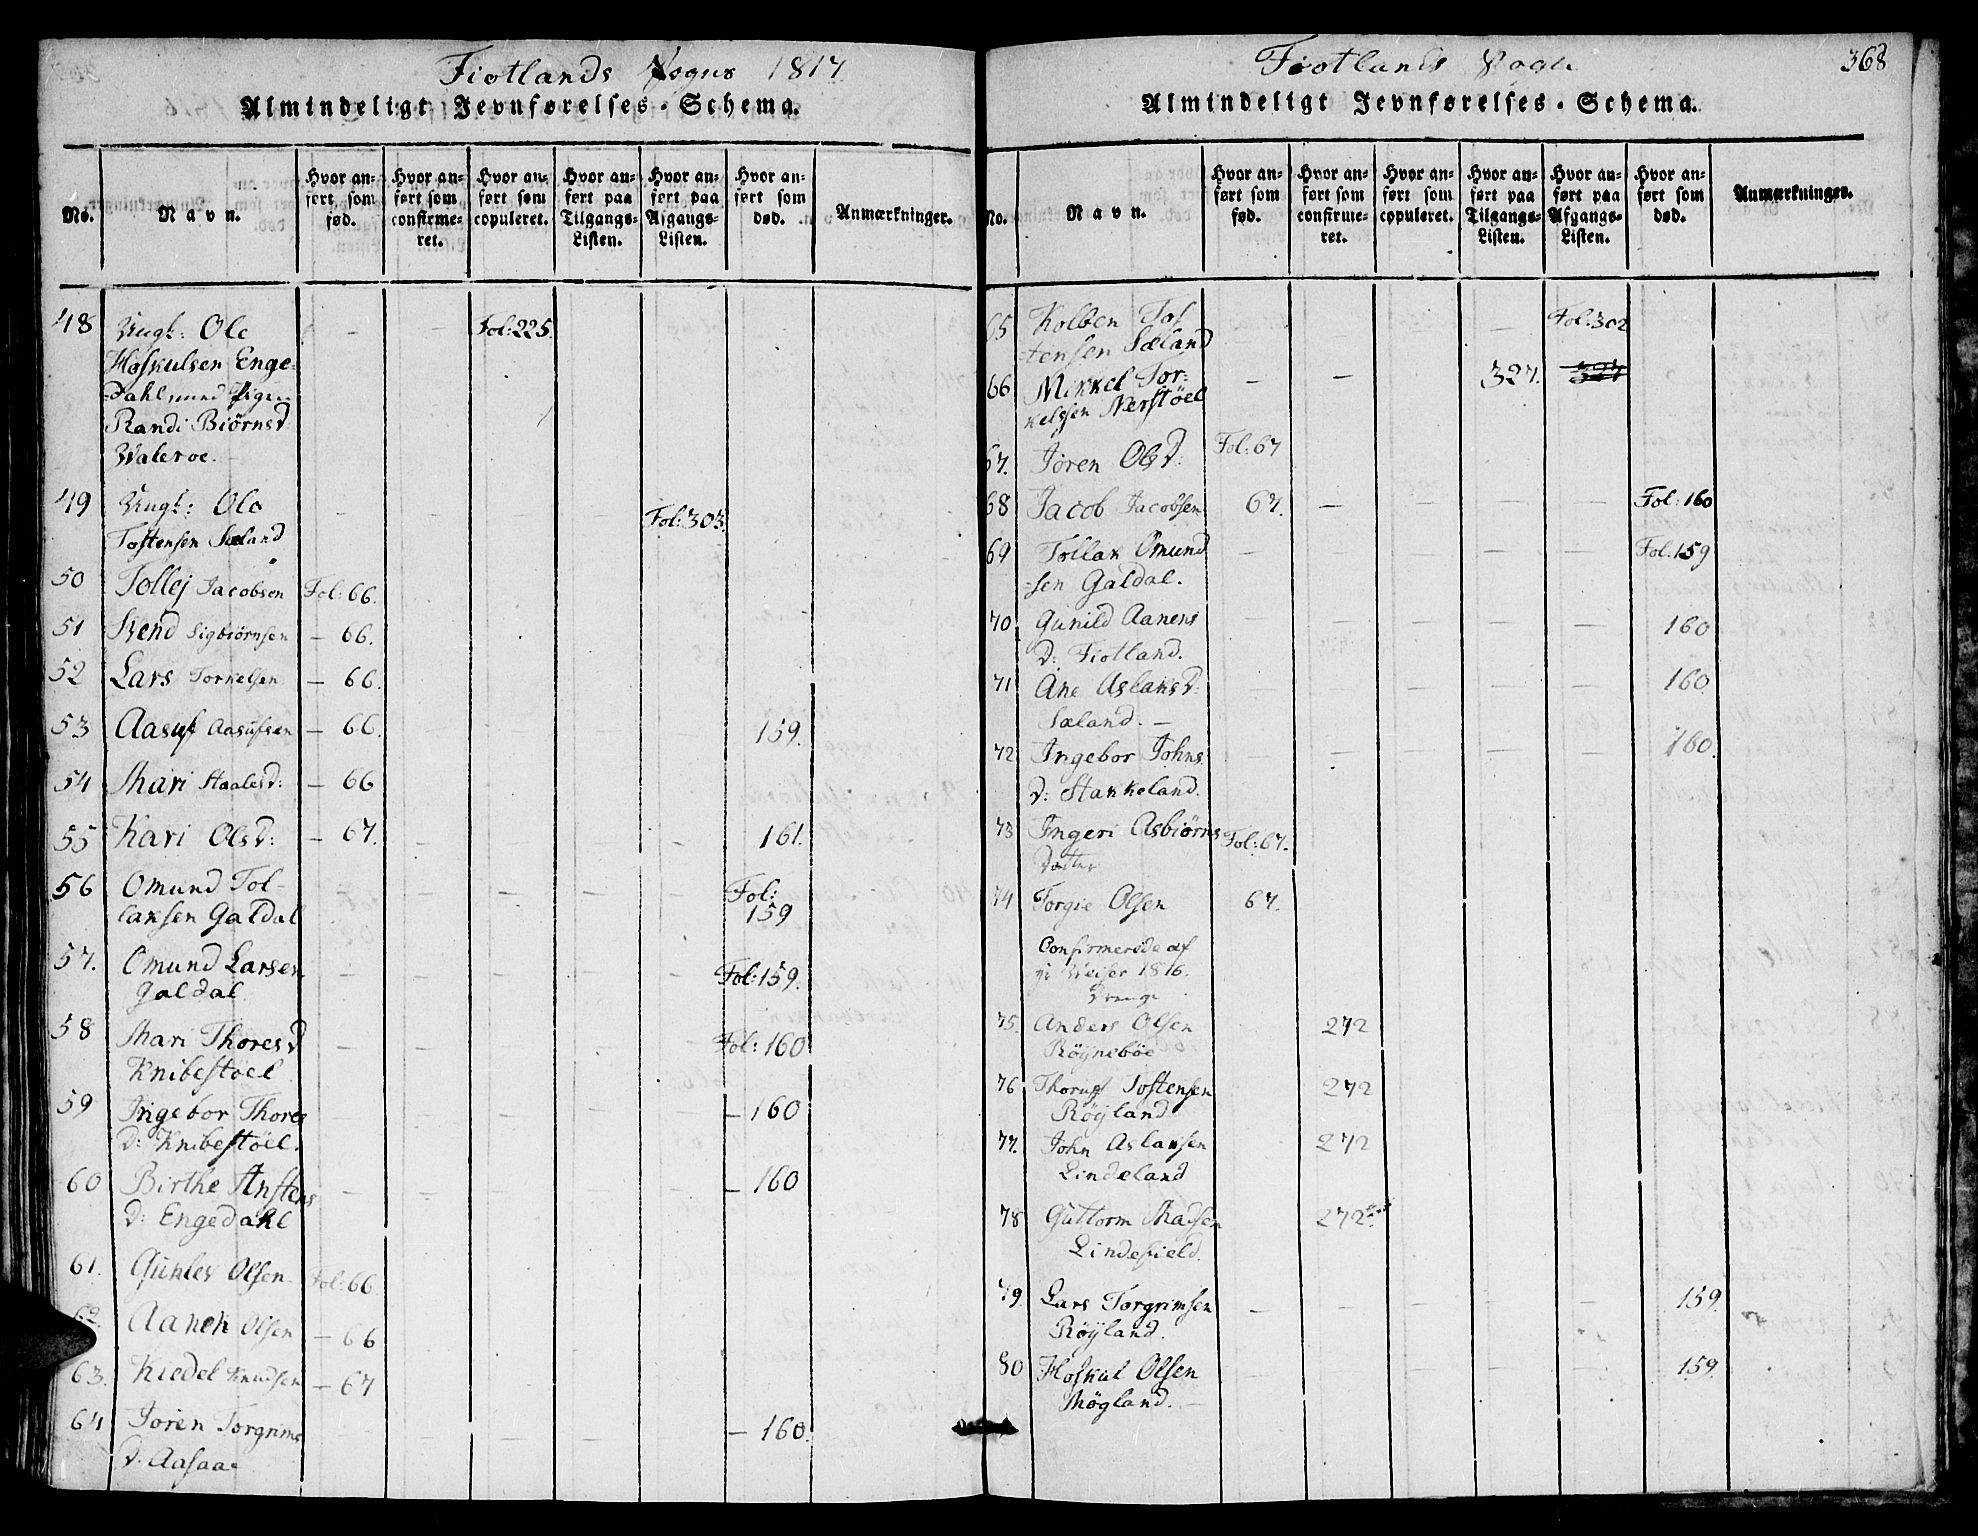 Fiotlands Sogns 1817.
Almindeligt Jevnførelses-Schema.
No.
Navn.
Hvor anført som fød.
Hvor anført som confirmeret.
Hvor anført som copuleret.
Hvor anført paa Tilgangs-Listen.
Hvor anført paa Afgangs-Listen.
Hvor anført som død.
Anmærkninger.
48 Ungk: Ole Fol:225.
Hoskulsen Enge=
=dahl, med Pigen
Randi Biørnsd
Waleroe.
49 Ungk: Ole Fol:303.
Tostensen Sæland
50 Tollej Jacobsen Fol:66.
51 Svend Sigbiørnsen — 66.
52 Lars Torkelsen — 66.
53 Aasuf Aasufsen — 66. 159.
54 Mari Staalesd: — 66
55 Kari Olsd: — 67. 161.
56 Omund Tol- Fol:
laksen Galdal 159
57. Omund Larsen Fol:159.
Galdal.
58 Mari Thoresd Fol:160
Knibestøel
59 Ingebor Thores — 160
d: Knibestøel.
60 Birthe Anstens — 160
d: Engedahl
61. Gunler Olsen Fol:66.
62. Aanen Olsen — 66
63. Kiedel Knudsen — 67
64 Joren Torgrims — 160.
d: Aasaae
Fiotlands Sogn 368
Almindeligt Jevnførelses-Schema.
No.
Navn.
Hvor anført som fød.
Hvor anført som confirmeret.
Hvor anført som copuleret.
Hvor anført paa Tilgangs-Listen.
Hvor anført paa Afgangs-Listen.
Hvor anført som død.
Anmærkninger.
65 Kolben Tos Fol:302
=tensen Sæland
66 Mikkel Tor: — — 327. 327
kelssen Nerstøel
67. Joren Olsd: Fol:67
68 Jacob Jacobsen 67. — Fol:160
69 Tollak Omund Fol.159
=sen Galdal.
70 Gunild Aanens 160
d: Fiotland.
71 Ane Aslaksd: 160.
Sæland. —
72 Ingebor Johns 160.
d: Stakkeland.
73 Ingeri Asbiørns Fol:67.
datter
74 Torgie Olsen 67.
Confirmerede af
1816.
Drenge
75. Anders Olsen 272
Røÿnebøe
76 Thoruf Tostensen 272
Røÿland
77. John Aslaksen 272
Lindeland
78 Guttorm Madsen 272
Lindefield.
79 Lars Torgrimsen 159.
Røÿland.
80 Hoskul Olsen 159.
Møgland. —